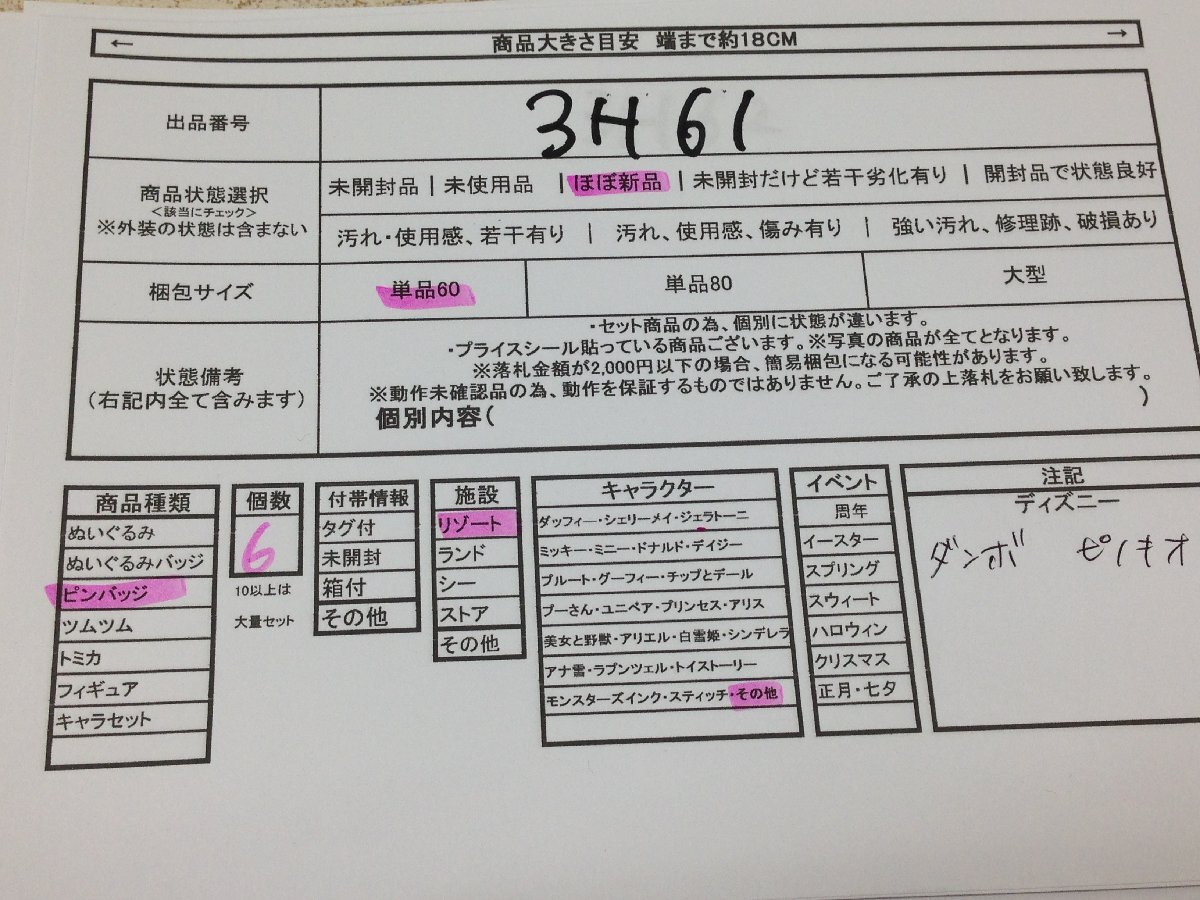 ← 商品大きさ目安 端まで約18CM →
出品番号 3H61
商品状態選択
<該当にチェック>
※外装の状態は含まない
未開封品 | 未使用品 | ほぼ新品 | 未開封だけど若干劣化有り | 開封品で状態良好
汚れ・使用感、若干有り | 汚れ、使用感、傷み有り | 強い汚れ、修理跡、破損あり
梱包サイズ 単品60 単品80 大型
状態備考
(右記内全て含みます)
・セット商品の為、個別に状態が違います。
・プライスシール貼っている商品ございます。※写真の商品が全てとなります。
※落札金額が2,000円以下の場合、簡易梱包になる可能性があります。
※動作未確認品の為、動作を保証するものではありません。ご了承の上落札をお願い致します。
個別内容( )
商品種類
ぬいぐるみ
ぬいぐるみバッジ
ピンバッジ
ツムツム
トミカ
フィギュア
キャラセット
個数
6
10以上は
大量セット
付帯情報
タグ付
未開封
箱付
その他
施設
リゾート
ランド
シー
ストア
その他
キャラクター
ダッフィー・シェリーメイ・ジェラトーニ
ミッキー・ミニー・ドナルド・デイジー
プルート・グーフィー・チップとデール
プーさん・ユニベア・プリンセス・アリス
美女と野獣・アリエル・白雪姫・シンデレラ
アナ雪・ラプンツェル・トイストーリー
モンスターズインク・スティッチ・その他
イベント
周年
イースター
スプリング
スウィート
ハロウィン
クリスマス
正月・七夕
注記
ディズニー
ダンボ ピノキオ